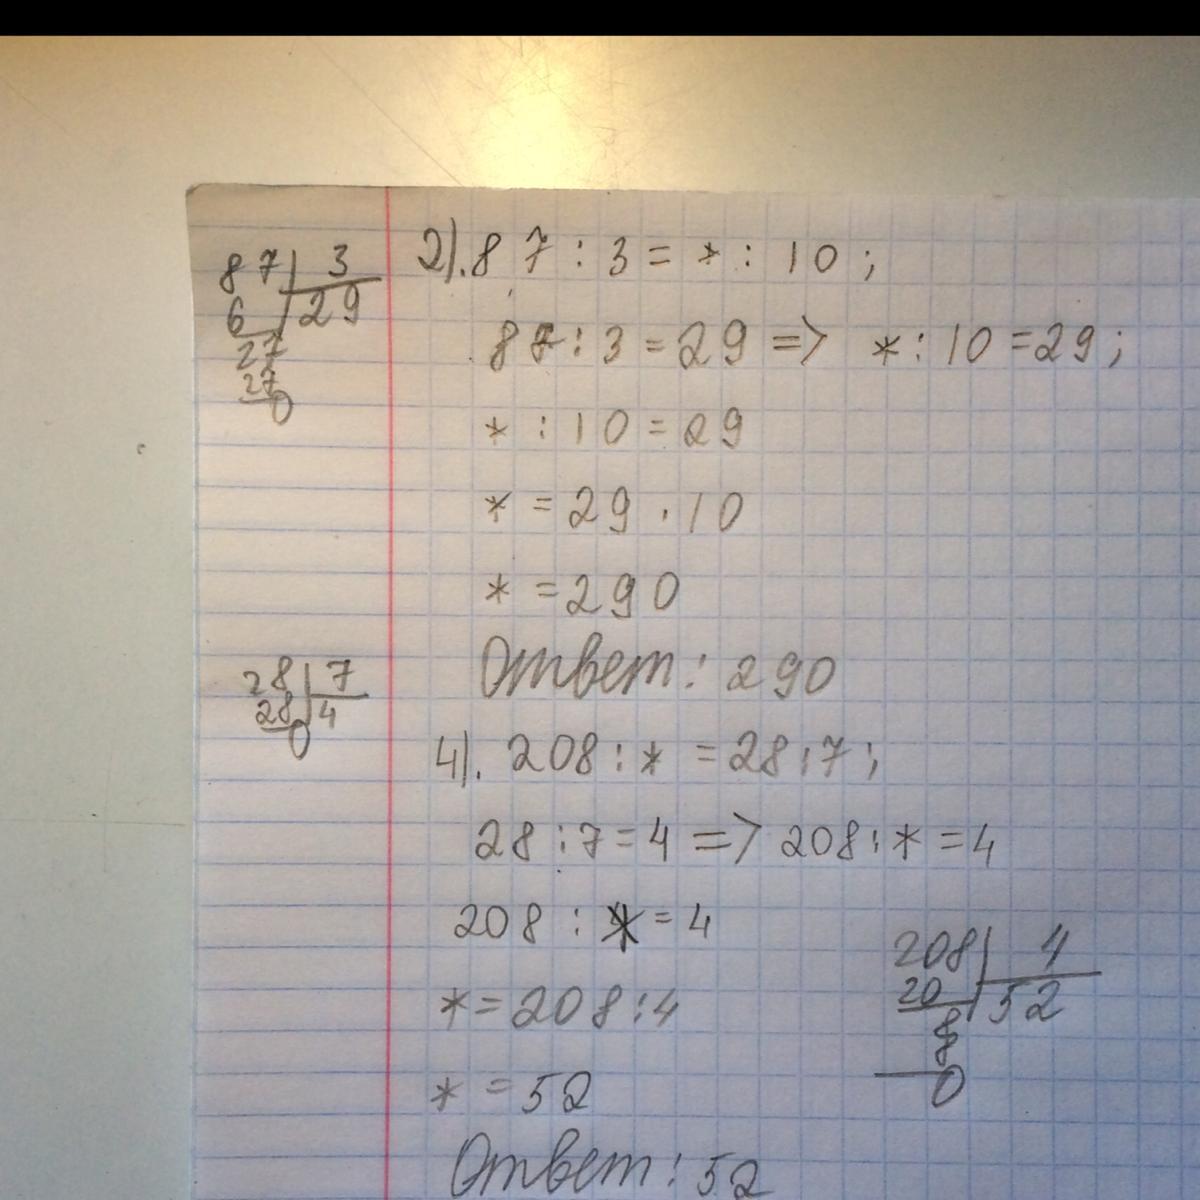 87 3
6 29
27
27
0
2). 87 : 3 = * : 10 ;
87 : 3 = 29 => * : 10 = 29 ;
* : 10 = 29
* = 29 · 10
* = 290
Ответ: 290
28 7
28 4
0
4). 208 : * = 28 : 7 ;
28 : 7 = 4 => 208 : * = 4
208 : * = 4
* = 208 : 4
* = 52
Ответ: 52
208 4
20 52
8
0